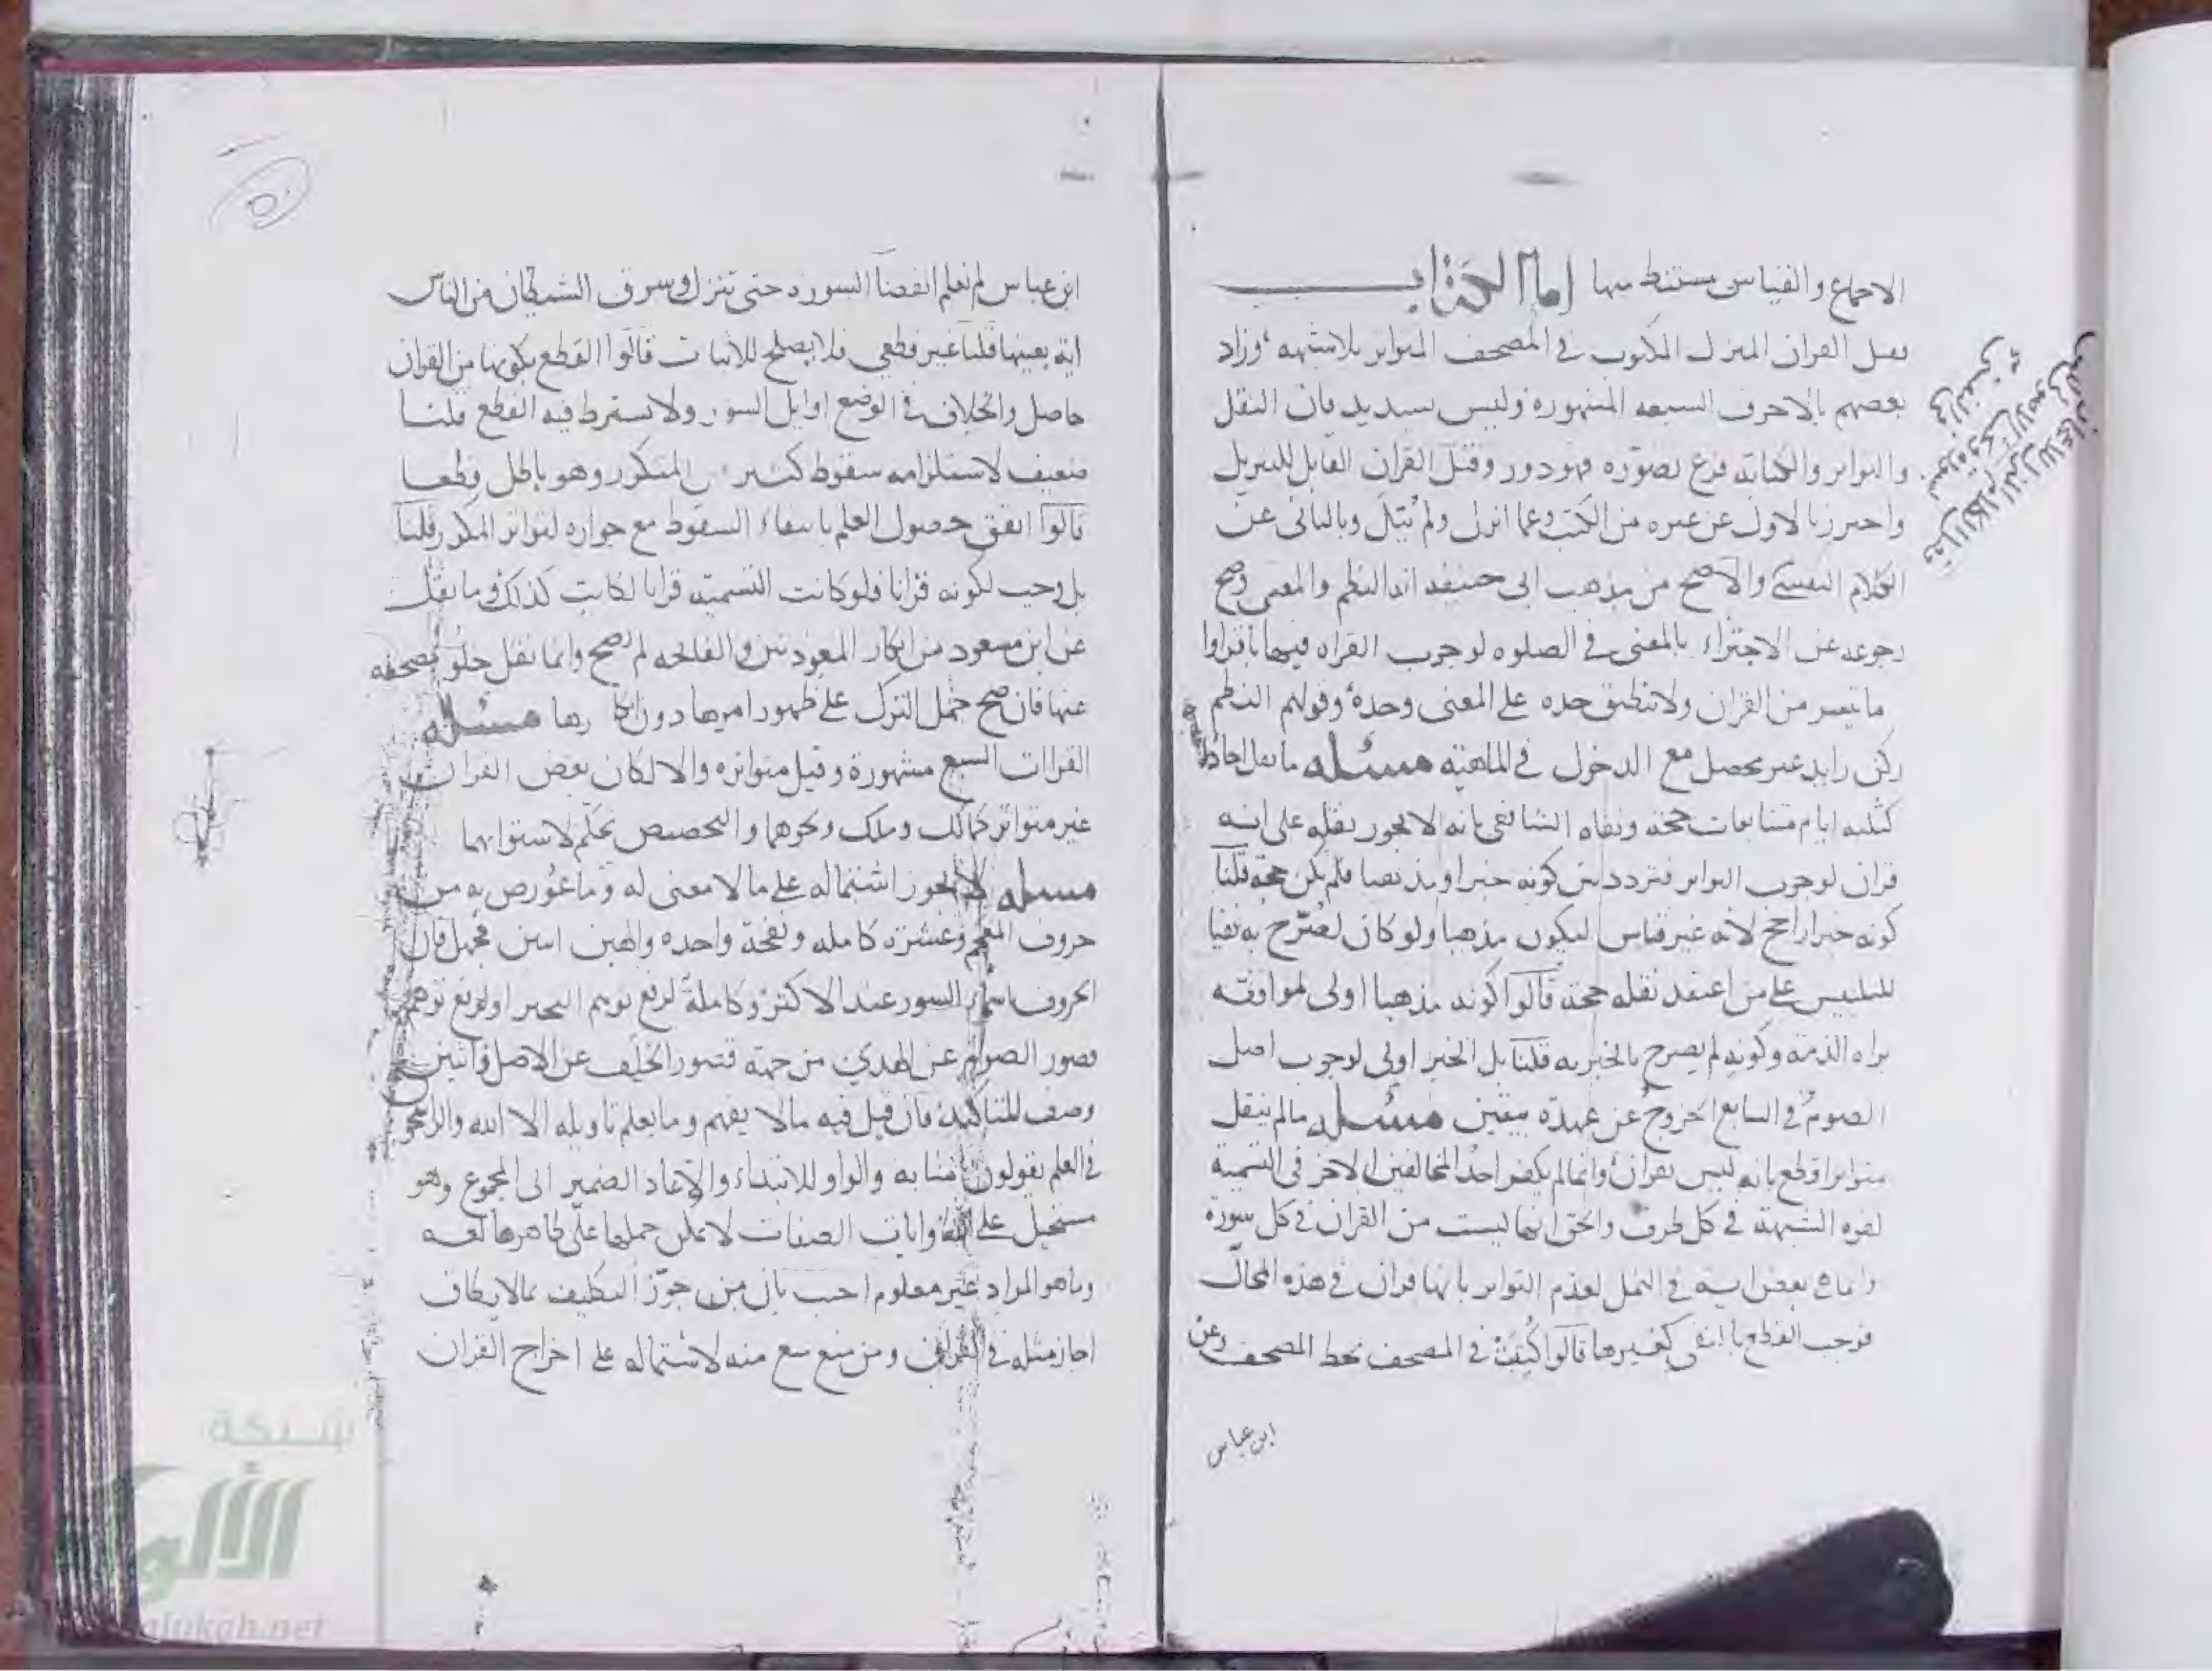 الاجماع والقياس مستنبط منها اما الكتاب
فقيل القران المنزل المكتوب في المصحف المتواتر بلا شبهه وزاد
بعضهم بالاحرف السبعه المشهورة وليس بسديد فان النقل
والتواتر والكتابه فرع تصوره فهو دور وقيل القران القابل للتنزيل
واحترز بالاول عن غيره من الكتب وعما انزل ولم يتل وبالثاني عن
الكلام النفسي والاصح من مذهب ابي حنيفه انه النظم والمعنى وصح
رجوعه عن الاجتزاء بالمعنى في الصلوه لوجوب القراه فيها باقراوا
ما تيسر من القران ولا تنطبق حده على المعنى وحده وقولهم النظم
ركن زايد غير محصل مع الدخول في الماهية مسئله ما نقل احادا
كثلثه ايام متتابعات حجة ونفاه الشافعي بانه لا يجوز نقله على انه
قران لوجوب التواتر فتردد بين كونه خبرا او مذهبا فلم يكن حجة قلنا
كونه خبرا راجح لانه غير قياس ليكون مذهبا ولو كان لصرح به نفيا
للتلبيس على من اعتقد نقله حجة قالوا كونه مذهبا اولى لموافقه
براه الذمة وكونه لم يصرح بالخبريه قلنا بل الخبر اولى لوجوب اصل
الصوم في السابع الخروج عن عهدة بيقين مسئله ما لم ينقل
متواترا قطع بانه ليس بقران وانما لم يكفر احد المخالفين الاخر في التسمية
لقوه الشبهة في كل طرف والحق انها ليست من القران في كل سورة
وانما هي بعض اية في النمل لعدم التواتر بانها قران في هذه المحال
فوجب القطع بانتفى كغيرها قالوا كتبت في المصحف بخط المصحف وعن
ابن عباس
ابن عباس لم نعلم انقضا السورة حتى تنزل وسرق الشيطان من الناس
اية بعينها قلنا غير قطعي فلا يصلح للاثبات قالوا القطع بكونها من القران
حاصل والخلاف في الوضع اوايل السور ولا يشترط فيه القطع قلنا
ضعيف لاستلزامه سقوط كثير من المتكرر وهو باطل قطعا
قالوا اتفق حصول العلم بانتفاء السقوط مع جوازه لتواتر المكرر قلنا
بل وجب لكونه قرانا فلو كانت التسميه قرانا لكانت كذلك وما نقل
عن ابن مسعود من انكار المعوذتين والفاتحه لم يصح وانما نقل خلو مصحفه
عنها فان صح حمل الترك على ظهور امرها دون انكارها مسئله
القراات السبع مشهورة وقيل متواتره والا لكان بعض القران
غير متواتر كمالك وملك ونحوهما والتخصيص تحكم لاستوائهما
مسئله لا يجوز اشتماله على ما لا معنى له وما عورض به من
حروف المعجم وعشرة كاملة ونفخة واحده والهين اثنين فجهل فان
الحروف اسماء السور عند الاكثر وكاملة لرفع توهم التخيير او لرفع توهم
قصور الصوام عن الهدي من جهة قصور الخلف عن الاصل واثنين
وصف للتاكيد فان قيل فيه ما لا يفهم وما يعلم تاويله الا الله والراسخون
في العلم يقولون امنا به والواو للابتداء والا عاد الضمير الى المجموع وهو
مستحيل على الله وايات الصفات لا يمكن حملها على ظاهرها لغه
وما هو المراد غير معلوم اجيب بان من جوز التكليف بما لا يطاق
اجاز مثله في القران ومن منع منع منه لاشتماله على اخراج القران
شبكة
الألوكة
alukah.net